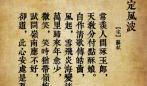 定風波
【宋】蘇軾
常羨人間琢玉郎，
天教分付點酥娘。
自作清歌傳皓齒，
風起，雪飛炎海變
萬里歸來年愈少，
微笑，笑時猶帶嶺
試問嶺南應不好，
卻道，此心安處是